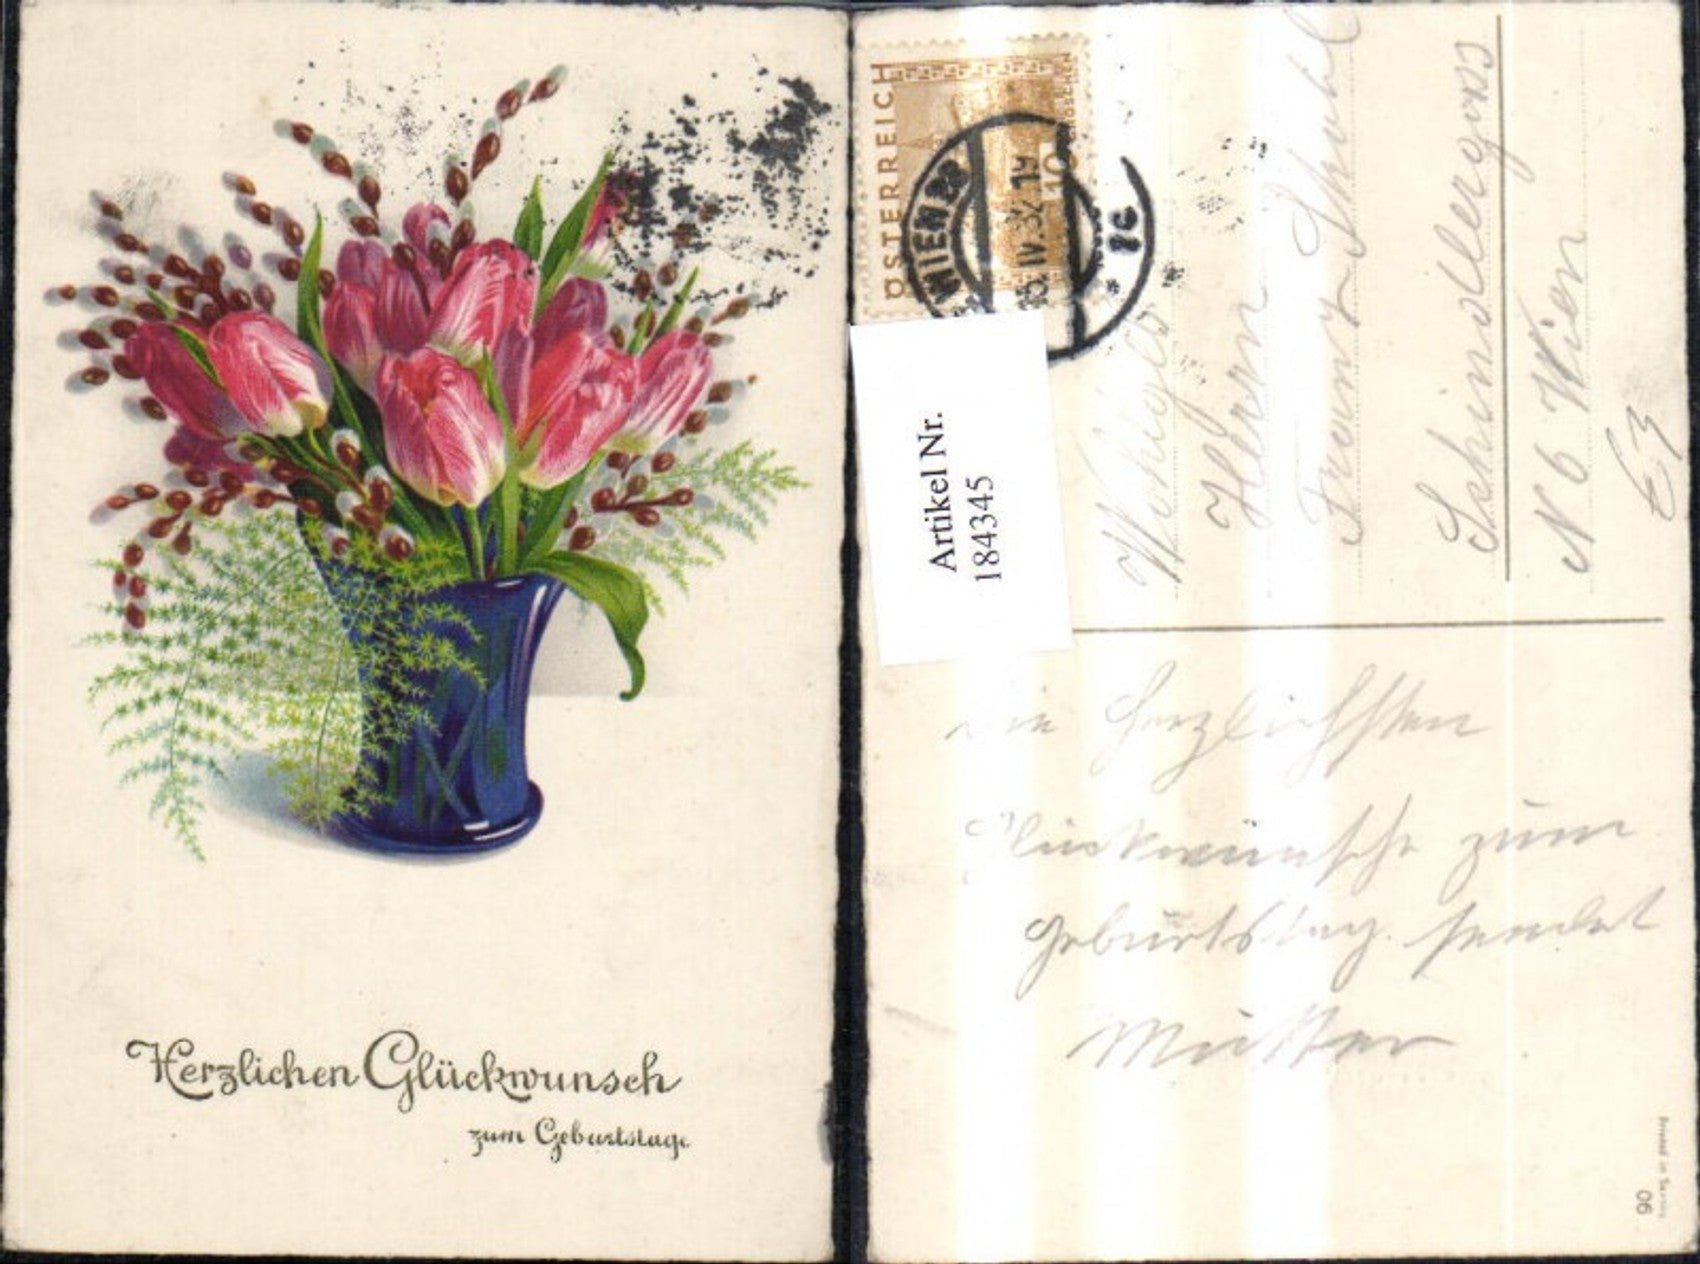 Herzlichen Glückwunsch
zum Geburtstage
ÖSTERREICH
10
GROSCHEN
WIEN
15.IV.32.19
* 1c
Artikel Nr.
184345
Wohlgb
Herrn
Franz
Schindlergass
N 6 Wien
die herzlichsten
Glückwünsche zum
Geburtstag sendet
Mutter
90